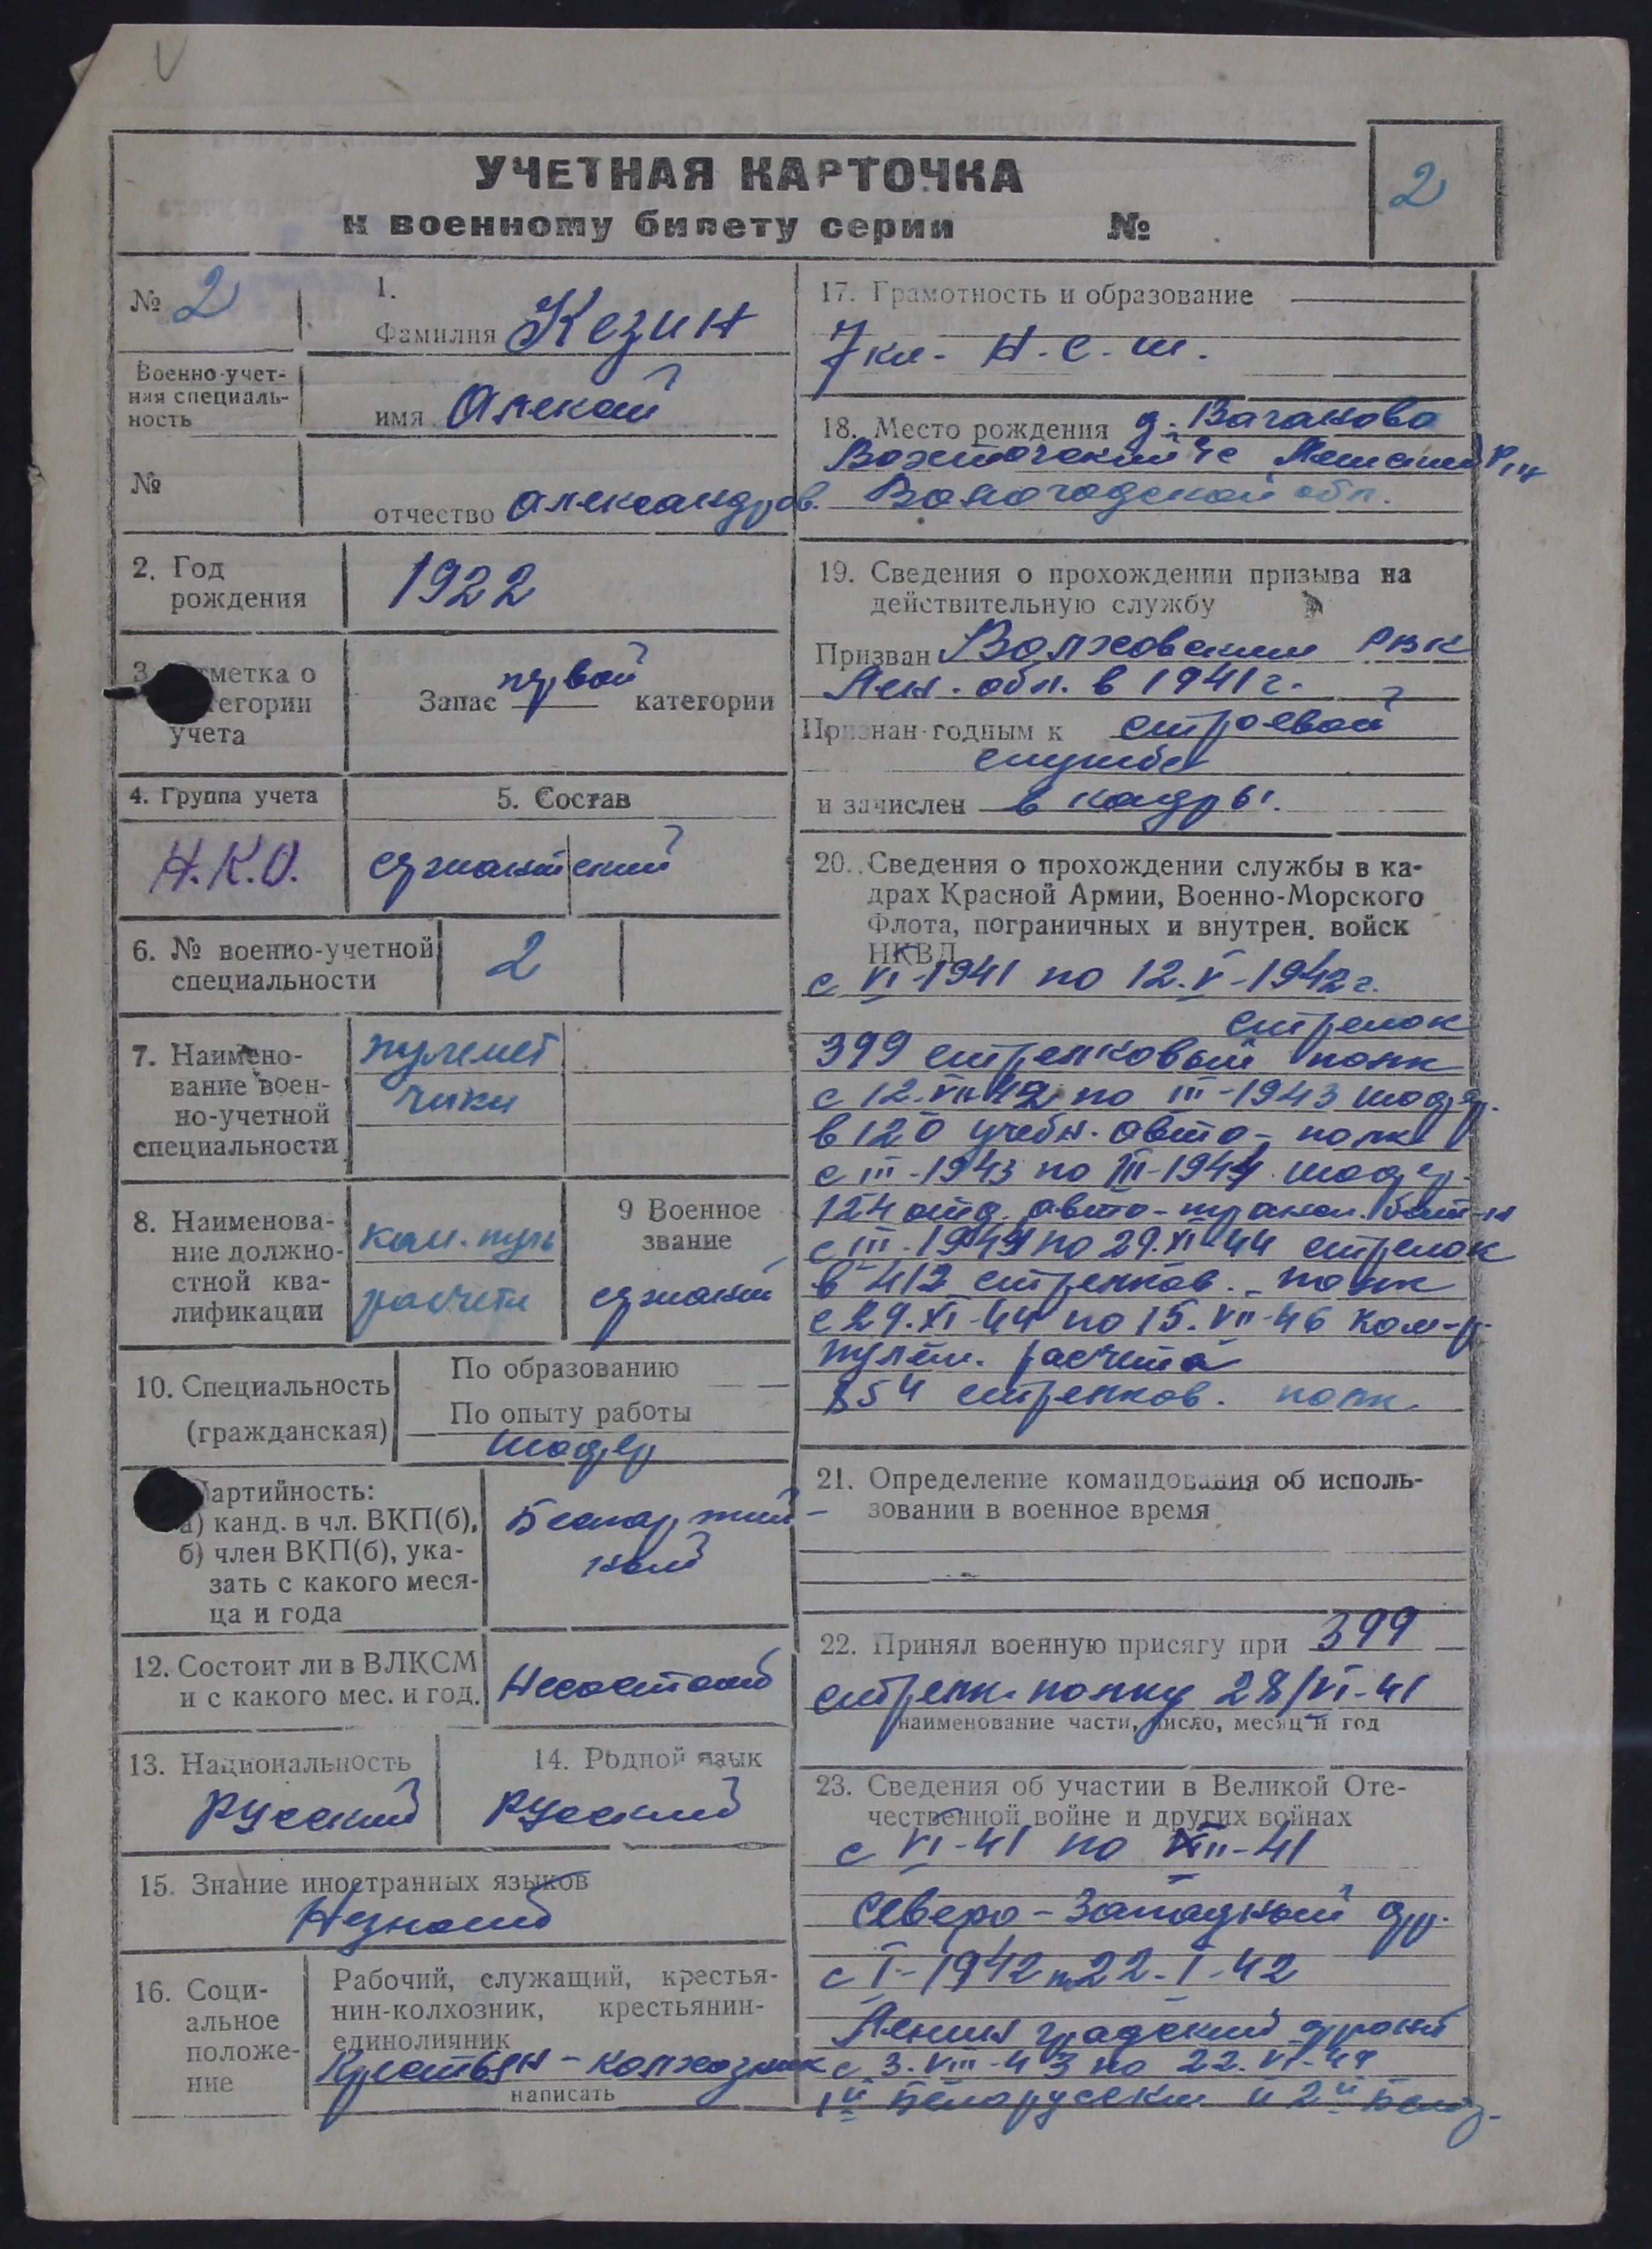 УЧЕТНАЯ КАРТОЧКА
к военному билету серии №
2
№ 2
1.
Фамилия Кезин
Военно-учет-
ная специаль-
ность
имя Алексей
№
отчество Александров.
2. Год
рождения
1922
3. Отметка о
категории
учета
Запас первой категории
4. Группа учета
Н.К.О.
5. Состав
сержантский
6. № военно-учетной
специальности
2
7. Наимено-
вание воен-
но-учетной
специальности
пулемет
чики
8. Наименова-
ние должно-
стной ква-
лификации
ком. пул
расчета
9 Военное
звание
сержант
10. Специальность
(гражданская)
По образованию
По опыту работы
шофер
Партийность:
а) канд. в чл. ВКП(б),
б) член ВКП(б), ука-
зать с какого меся-
ца и года
Беспартий-
ный
12. Состоит ли в ВЛКСМ
и с какого мес. и год.
Несостоит
13. Национальность
Русский
14. Родной язык
Русский
15. Знание иностранных языков
Незнает
16. Соци-
альное
положе-
ние
Рабочий, служащий, крестья-
нин-колхозник, крестьянин-
единоличник
Крестьян-колхозник
написать
17. Грамотность и образование
7 кл. Н.С.Ш.
18. Место рождения д. Ваганово
Вологодской обл.
19. Сведения о прохождении призыва на
действительную службу
Призван Волховским РВК
Лен. обл. в 1941 г.
Признан годным к строевой
службе
и зачислен в кадры.
20. Сведения о прохождении службы в ка-
драх Красной Армии, Военно-Морского
Флота, пограничных и внутрен. войск
НКВД
с VI-1941 по 12.V-1942 г.
стрелок
399 стрелковый полк
с 12.VII-42 по III-1943 шофер.
в 120 учебн. авто-полк
с III-1943 по III-1944 шофер.
124 отд. авто-трансп. бат-н
с III-1944 по 29.XI-44 стрелок
в 412 стрелков. полк
с 29.XI-44 по 15.VII-46 ком-р
пулем. расчета
854 стрелков. полк.
21. Определение командования об исполь-
зовании в военное время
22. Принял военную присягу при 399
стрелк. полку 28/VI-41
наименование части, число, месяц и год
23. Сведения об участии в Великой Оте-
чественной войне и других войнах
с VI-41 по XII-41
Северо-Западный фр.
с I-1942 по 22-I-42
Ленинградский фронт
с 3.VIII-43 по 22.VI-44
1й Белорусски и 2й